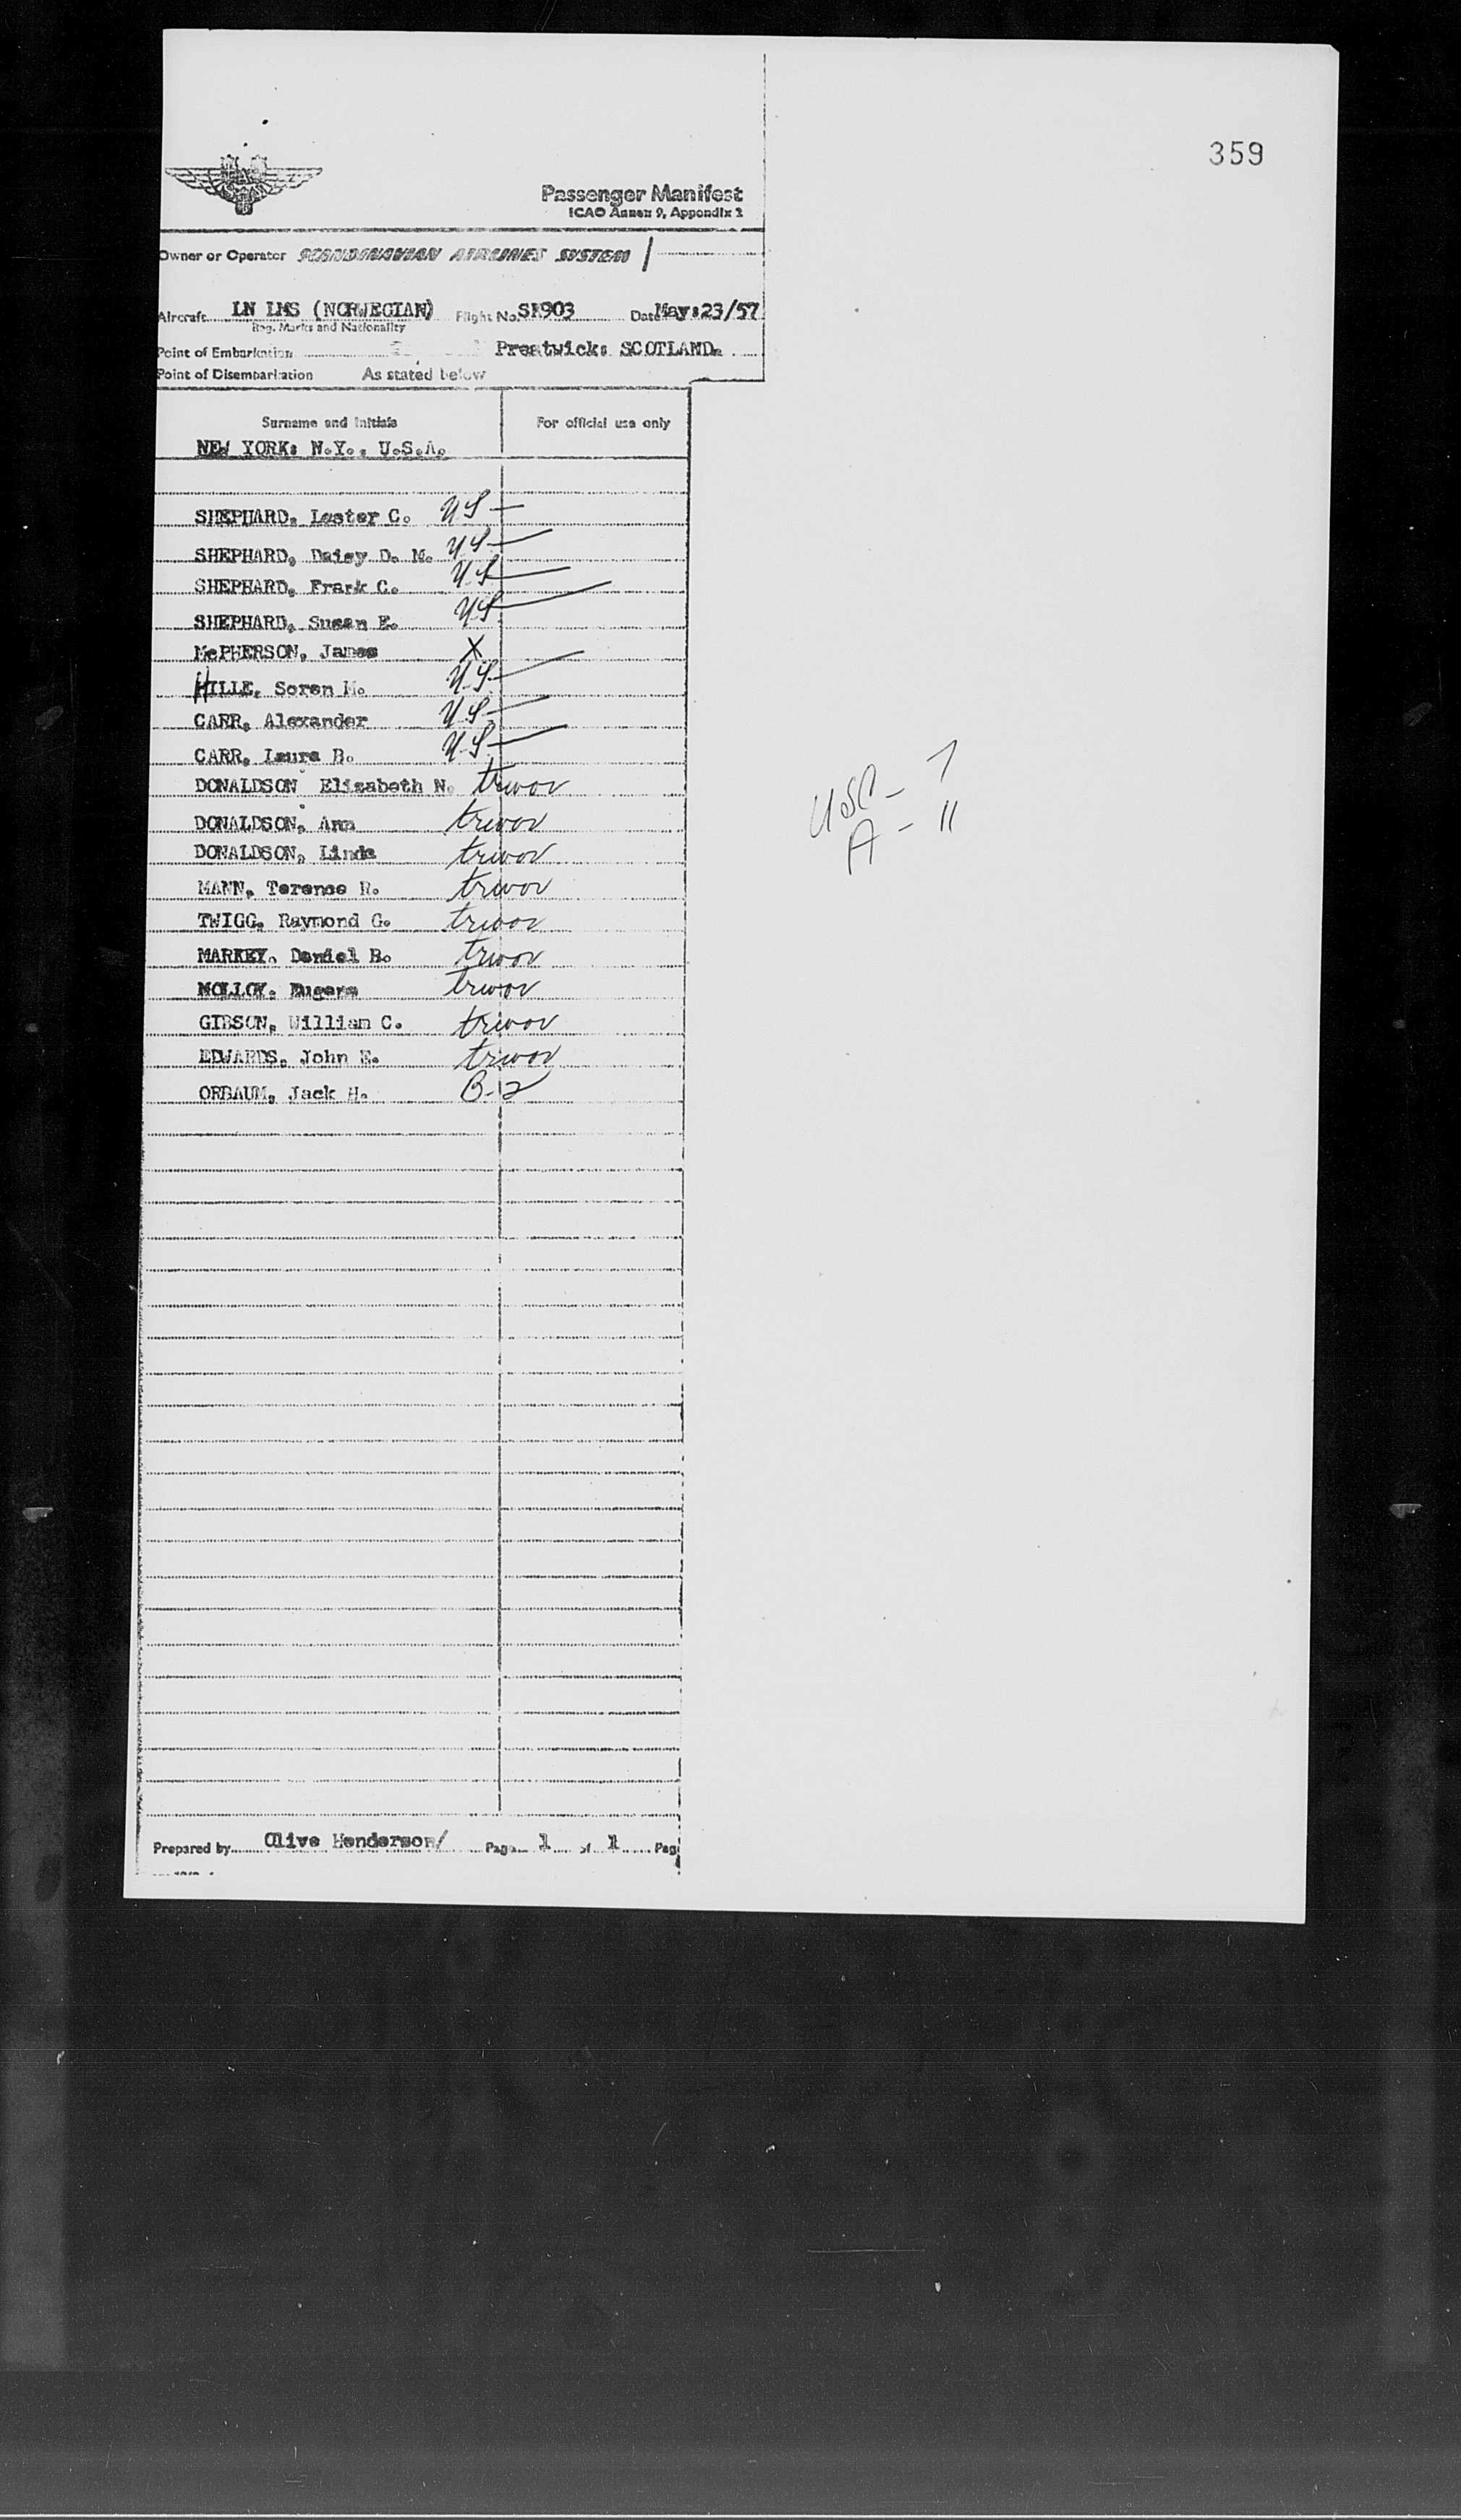 359
Passenger Manifest
ICAO Annex 9, Appendix 2
Owner or Operator SCANDINAVIAN AIRLINES SYSTEM
Aircraft LN LMS (NORWEGIAN) Flight No. SK903 Date May:23/57
Reg. Marks and Nationality
Point of Embarkation Prestwick: SCOTLAND.
Point of Disembarkation As stated below
Surname and Initials For official use only
NEW YORK: N.Y., U.S.A.
SHEPHARD, Lester C. US
SHEPHARD, Daisy D. M. US
SHEPHARD, Frank C. US
SHEPHARD, Susan E. US
McPHERSON, James X
HILLE, Soren M. US
CARR, Alexander US
CARR, Laura B. US
DONALDSON Elizabeth N. trwov
DONALDSON, Ann trwov
DONALDSON, Linda trwov
MANN, Terence R. trwov
TWIGG, Raymond G. trwov
MARKEY, Daniel B. trwov
MOLLOY, Eugene trwov
GIBSON, William C. trwov
EDWARDS, John E. trwov
ORBAUM, Jack H. B-2
USC - 7
A - 11
Prepared by Olive Henderson/ Page 1 of 1 Pag